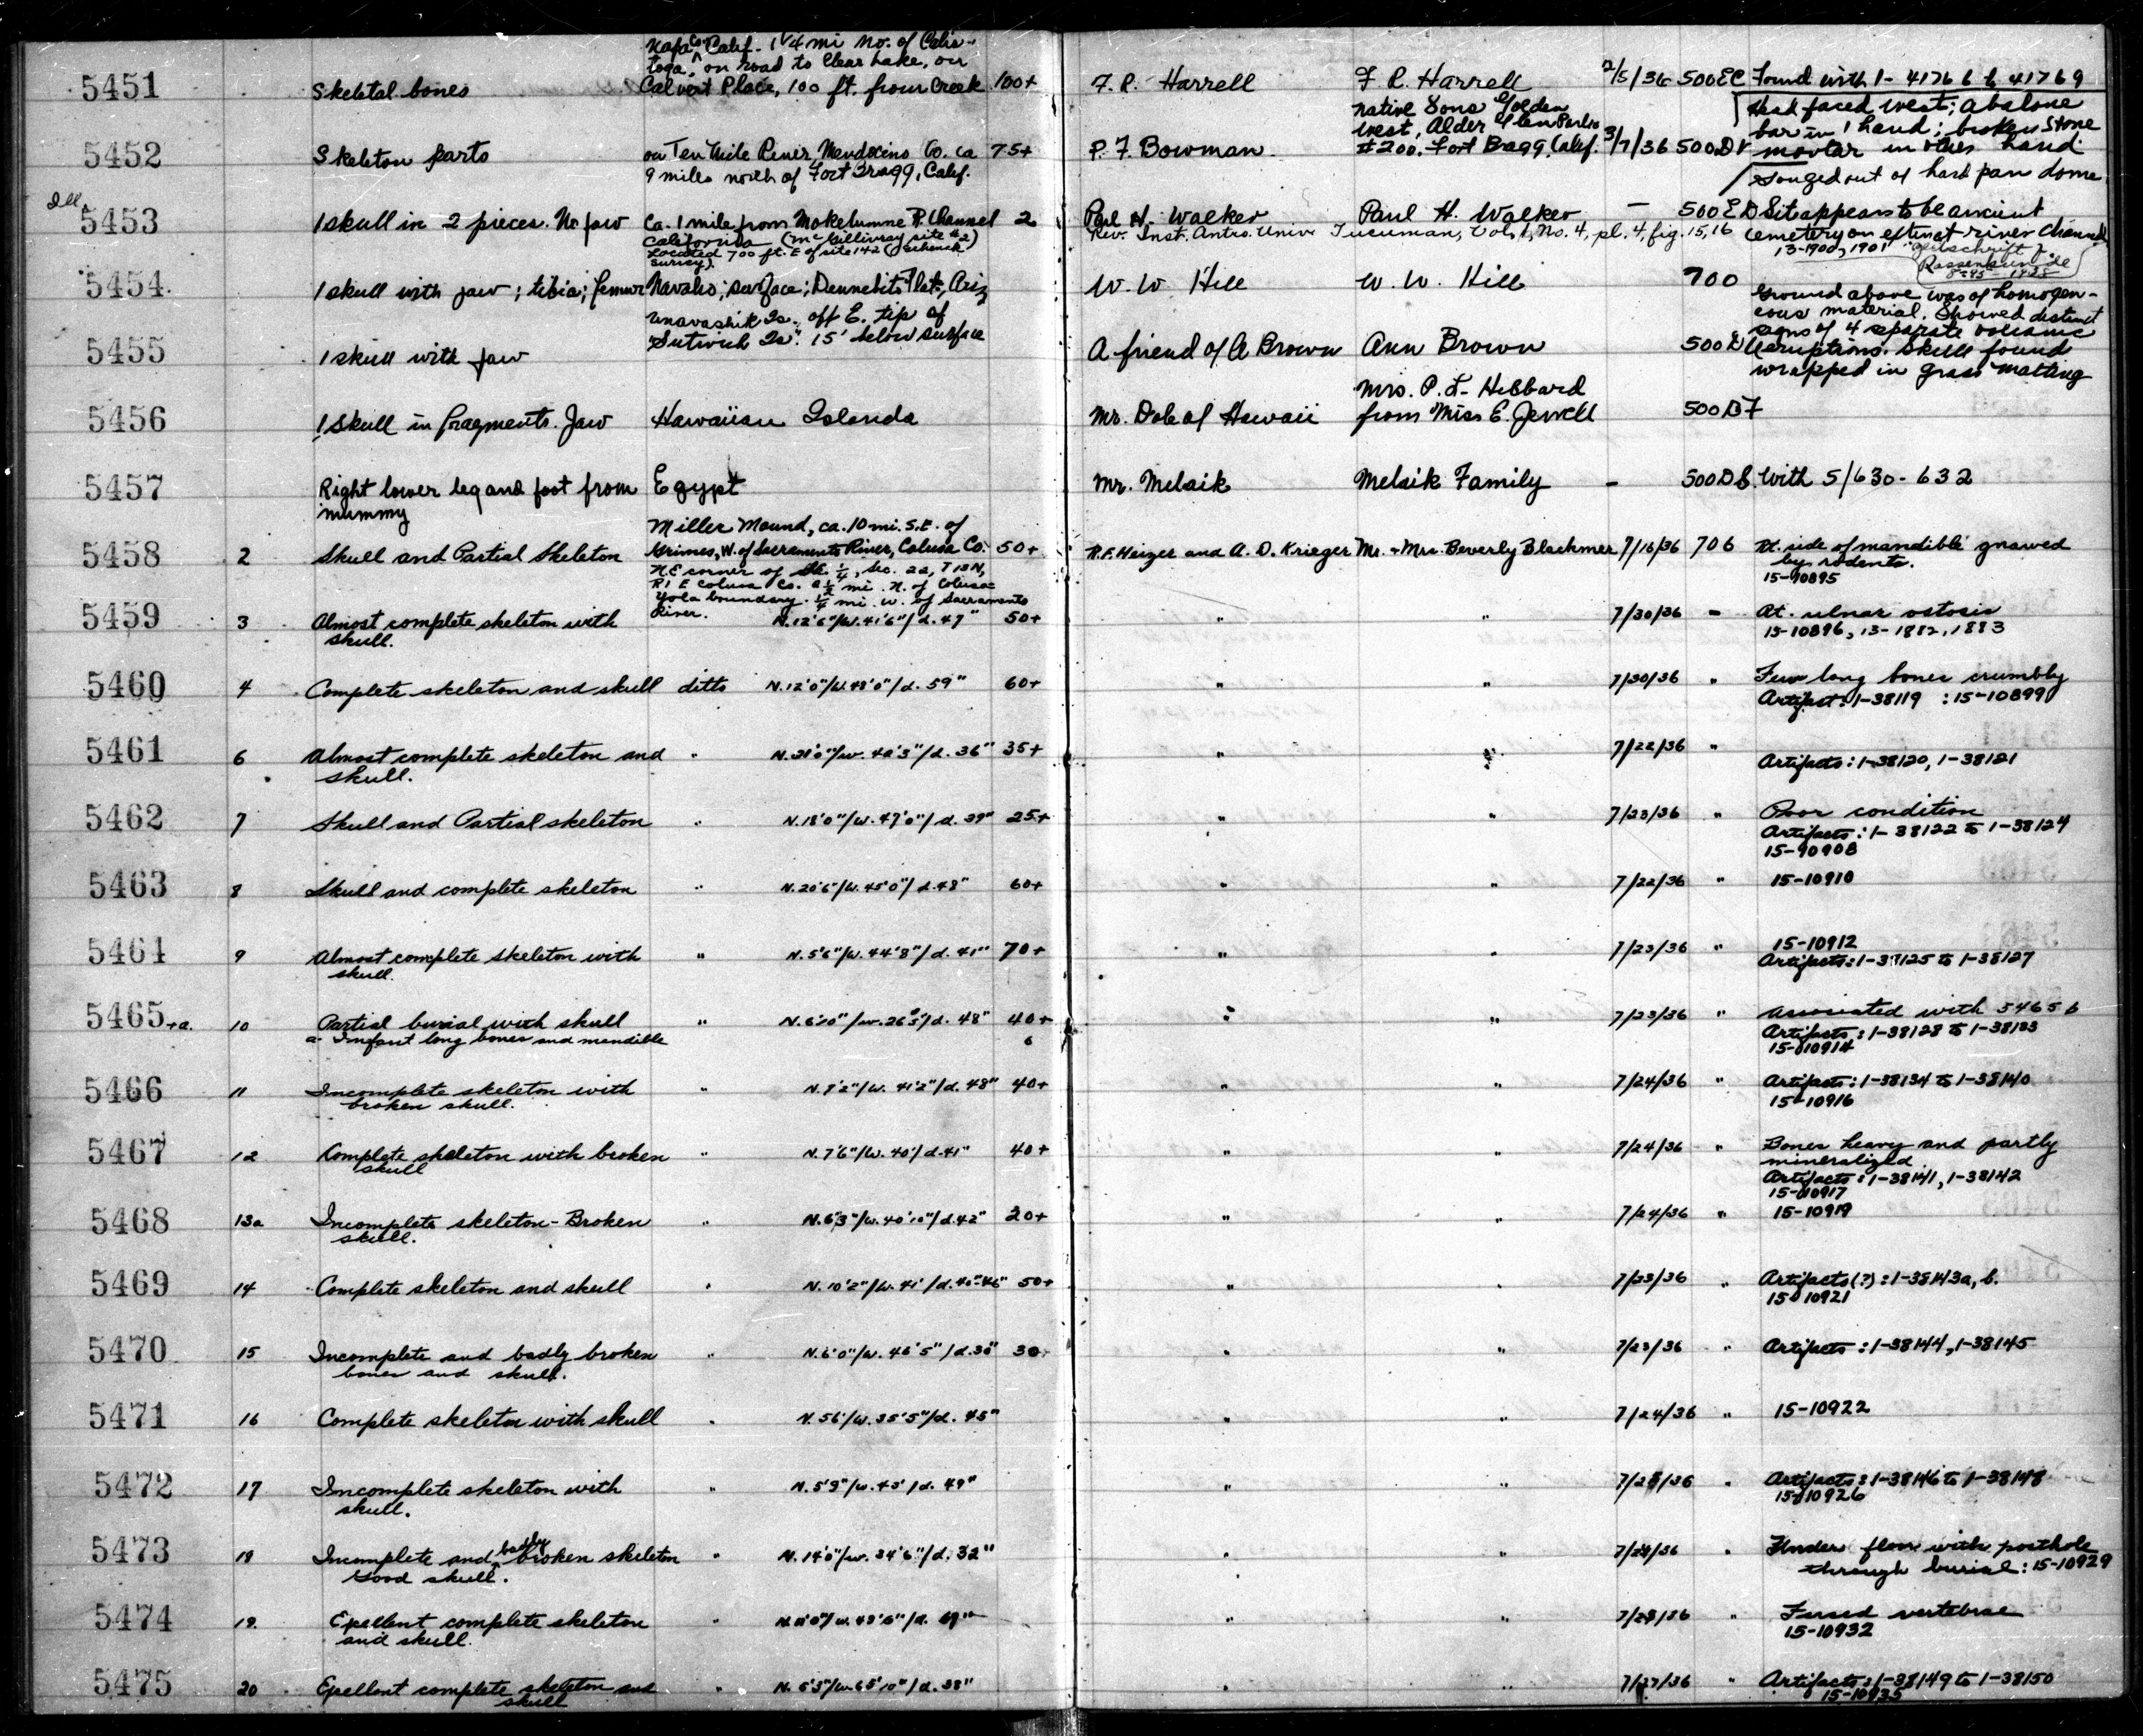 Napa Co. Calif. 1 1/4 mi no. of Calis-
toga, on road to Clear Lake, on
5451 Skeletal bones Calvert Place, 100 ft. from Creek 100+ F. R. Harrell F R. Harrell 2/5/36 500EC Found with 1- 41766 to 41769
Native Sons Golden
West, Alder Glen Parlor
Head faced west; abalone
bar in 1 hand; broken stone
5452 Skeleton parts on Ten Mile River, Mendocino Co. ca 75+ P. F. Bowman #200. Fort Bragg, Calif. 3/7/36 500DV mortar in other hand
9 miles north of Fort Bragg, Calif.
Gouged out of hard pan dome
Ill.
5453 1 skull in 2 pieces. No jaw Ca. 1 mile from Mokelumne R. Channel 2 Paul H. Walker Paul H. Walker - 500ED Site appears to be ancient
California (McGillivray site #2) Rev. Inst. Antro. Univ Tucuman, Vol. 1, No. 4, pl. 4, fig. 15, 16 cemetery on extinct river channel
Located 700 ft. E of site 142 (Schenck 13-1900, 1901 Zeitschrift f.
survey). Rassenkunde
5454 1 skull with jaw; tibia; femur Navaho; surface; Dennebito Flat, Ariz W. W. Hill W. W. Hill 700
Ground above was of homogen-
Unavashik Is. off E. tip of eous material. Showed distinct
Sutwick Is. 15' below surface signs of 4 separate volcanic
5455 1 skull with jaw A friend of A Brown Ann Brown 500 eruptions. Skull found
wrapped in grass matting
Mrs. P. L. Hibbard
5456 1 Skull in fragments. Jaw Hawaiian Islands Mr. Dole of Hawaii from Miss E. Jewell 500DF
5457 Right lower leg and foot from Egypt Mr. Melsik Melsik Family - 500DS. With 5/630-632
mummy
Miller Mound, ca. 10 mi. S.E. of
5458 2 Skull and Partial Skeleton Grimes, W. of Sacramento River, Colusa Co. 50+ R. F. Heizer and A. D. Krieger Mr. + Mrs. Beverly Blackmer 7/16/36 706 Rt. side of mandible gnawed
N.E corner of SE 1/4, Sec. 22, T 13 N, by rodents.
R1 E Colusa Co. 2 1/2 mi. N. of Colusa- 15-10895
Yolo boundary. 1/4 mi. w. of Sacramento
River.
5459 3 Almost complete skeleton with N.12'6"/W.41'6"/d.47" 50+ " " 7/30/36 - Rt. ulnar ostosis
skull. 15-10896, 13-1882, 1883
5460 4 Complete skeleton and skull ditto N.12'0"/W.48'0"/d. 59" 60+ " " 7/30/36 " Few long bones crumbly
Artifact: 1-38119 : 15-10899
5461 6 Almost complete skeleton and " N.21'0"/W. 42'3"/d. 36" 35+ " " 7/22/36 "
skull. Artifacts: 1-38120, 1-38121
5462 7 Skull and Partial skeleton " N.18'0"/W.47'0"/d. 39" 25+ " " 7/23/36 " Poor condition
Artifacts: 1-38122 to 1-38124
15-10908
5463 8 Skull and complete skeleton " N.20'6"/W. 45'0"/d.48" 60+ " " 7/22/36 " 15-10910
5464 9 Almost complete skeleton with " N.5'6"/W. 44'8"/d. 41" 70+ " " 7/23/36 " 15-10912
skull. Artifacts: 1-38125 to 1-38127
5465+a. 10 Partial burial with skull " N.6'10"/W.26'5"/d. 48" 40+ " " 7/23/36 " Associated with 5465 b
a- Infant long bones and mandible 6 Artifacts: 1-38128 to 1-38133
15-10914
5466 11 Incomplete skeleton with " N.7'2"/W. 41'2"/d. 48" 40+ " " 7/24/36 " Artifacts: 1-38134 to 1-38140
broken skull. 15-10916
5467 12 Complete skeleton with broken " N.7'6"/W. 40'/d.41" 40+ " " 7/24/36 " Bones heavy and partly
skull mineralized
Artifacts: 1-38141, 1-38142
15-10917
5468 13a Incomplete skeleton - Broken " N.6'3"/W.40'10"/d.42" 20+ " " 7/24/36 " 15-10919
skull.
5469 14 Complete skeleton and skull " N.10'2"/W. 41'/d.40"-46" 50+ " " 7/23/36 " Artifacts(?): 1-38143a, b.
15-10921
5470 15 Incomplete and badly broken " N.6'0"/W. 46'5"/d.38" 30+ " " 7/23/36 " Artifacts: 1-38144, 1-38145
bones and skull.
5471 16 Complete skeleton with skull " N.5'6'/W.35'5"/d. 45" " " 7/24/36 " 15-10922
5472 17 Incomplete skeleton with " N. 5'9"/W. 43'/d. 49" " " 7/25/36 " Artifacts: 1-38146 to 1-38148
skull. 15-10926
5473 18 Incomplete and badly broken skeleton " N. 14'0"/W. 34'6"/d. 32" " " 7/28/36 " Under floor with posthole
Good skull. through burial: 15-10929
5474 19. Excellent complete skeleton " " " 7/28/36 " Fused vertebrae
and skull. 15-10932
5475 20 Excellent complete skeleton and " N. 5'3"/W.65'10"/d.38" " " 7/27/36 " Artifacts: 1-38149 to 1-38150
skull 15-10935